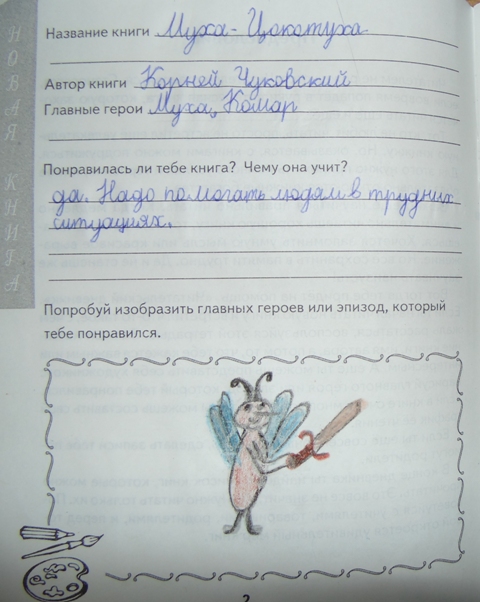 НОВАЯ КНИГА
Название книги Муха-Цокотуха
Автор книги Корней Чуковский
Главные герои Муха, Комар
Понравилась ли тебе книга? Чему она учит?
да. Надо помогать людям в трудних
ситуациях.
Попробуй изобразить главных героев или эпизод, который
тебе понравился.
2